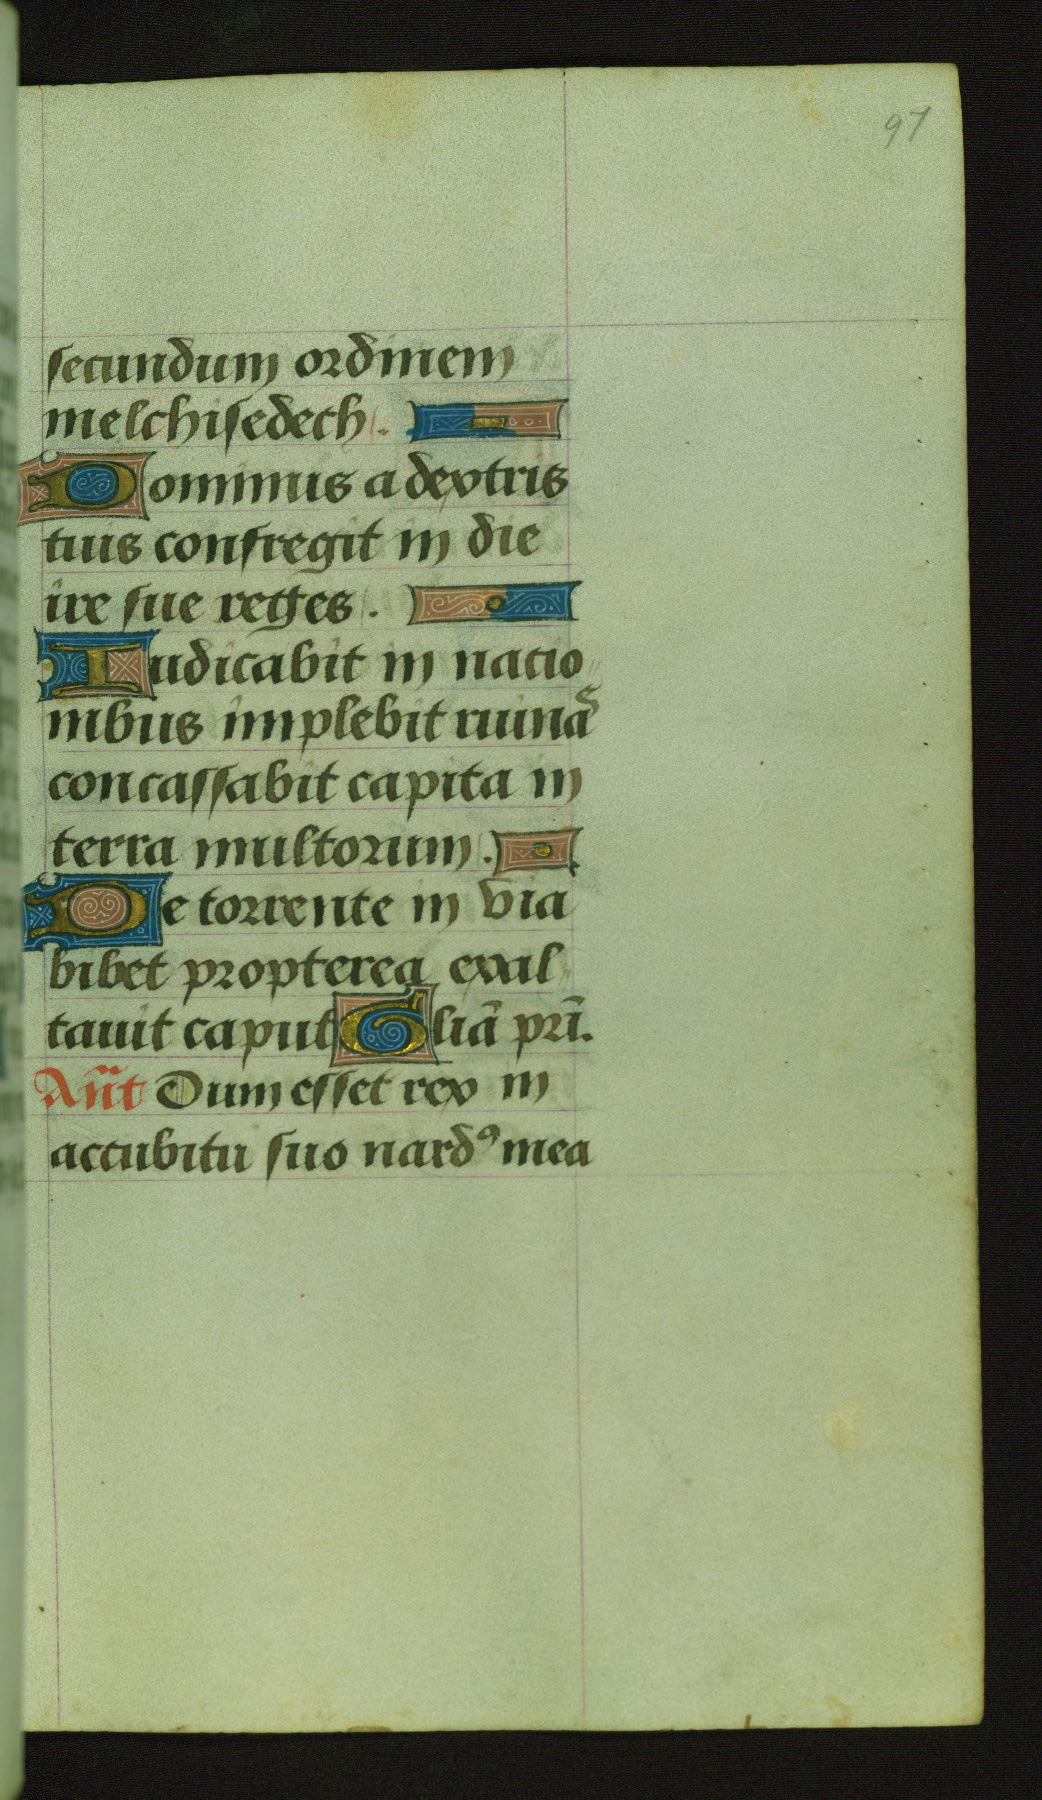 97
secundum ordinem
melchisedech.
Dominus a dextris
tuis confregit in die
ire sue reges.
Iudicabit in natio
nibus implebit ruinã
concassabit capita in
terra multorum.
De torrente in via
bibet propterea exal
tauit caput Gliã pri̅.
An̅t Dum esset rex in
accubitu suo nardꝰ mea